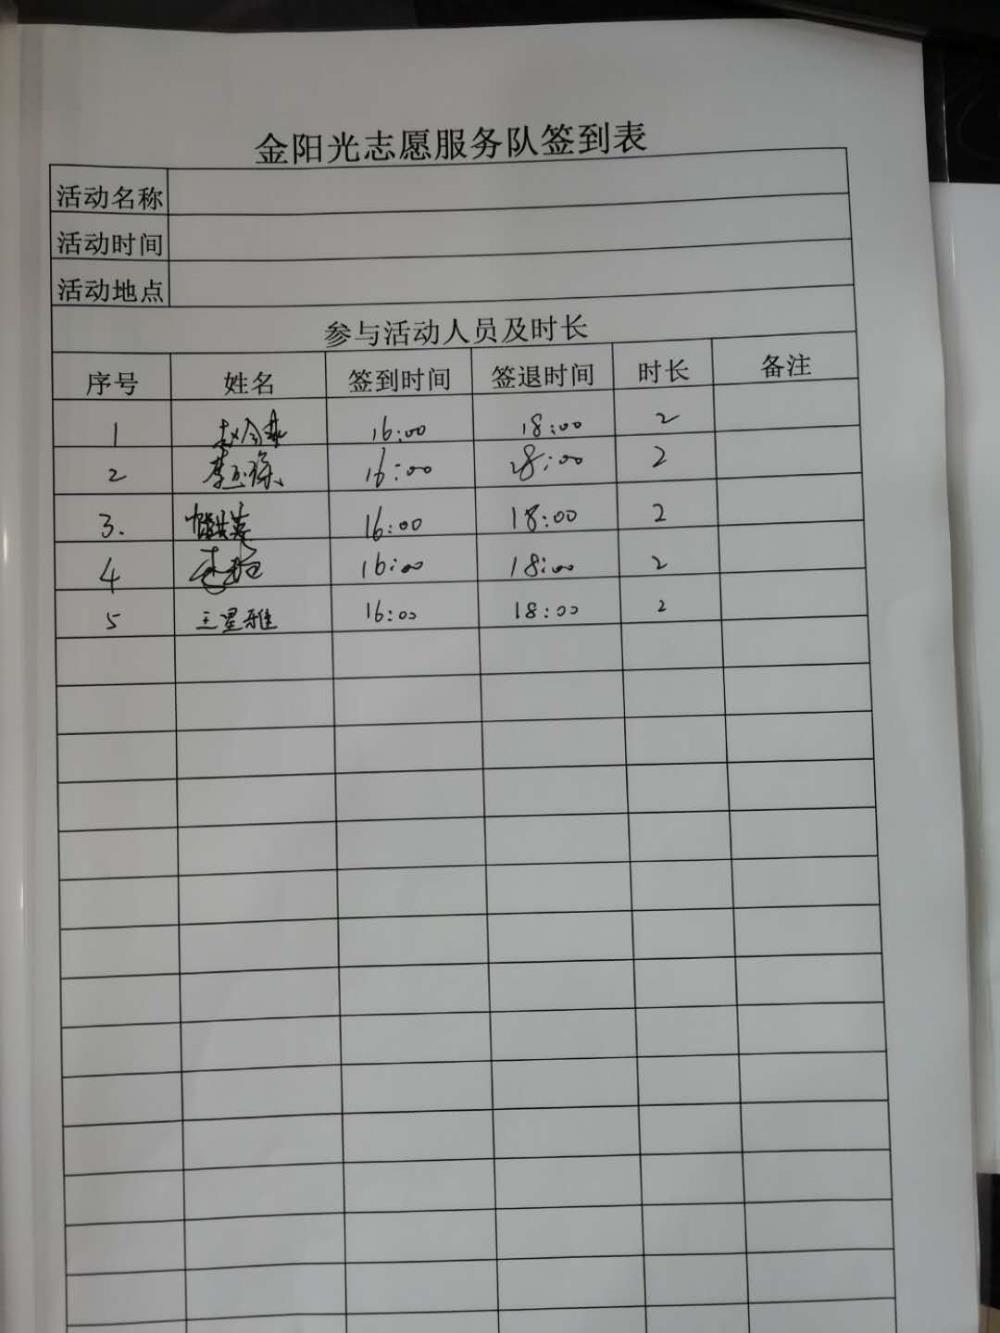 金阳光志愿服务队签到表
活动名称
活动时间
活动地点
参与活动人员及时长
序号 姓名 签到时间 签退时间 时长 备注
1 16:00 18:00 2
2 16:00 18:00 2
3. 16:00 18:00 2
4 16:00 18:00 2
5 王星雅 16:00 18:00 2